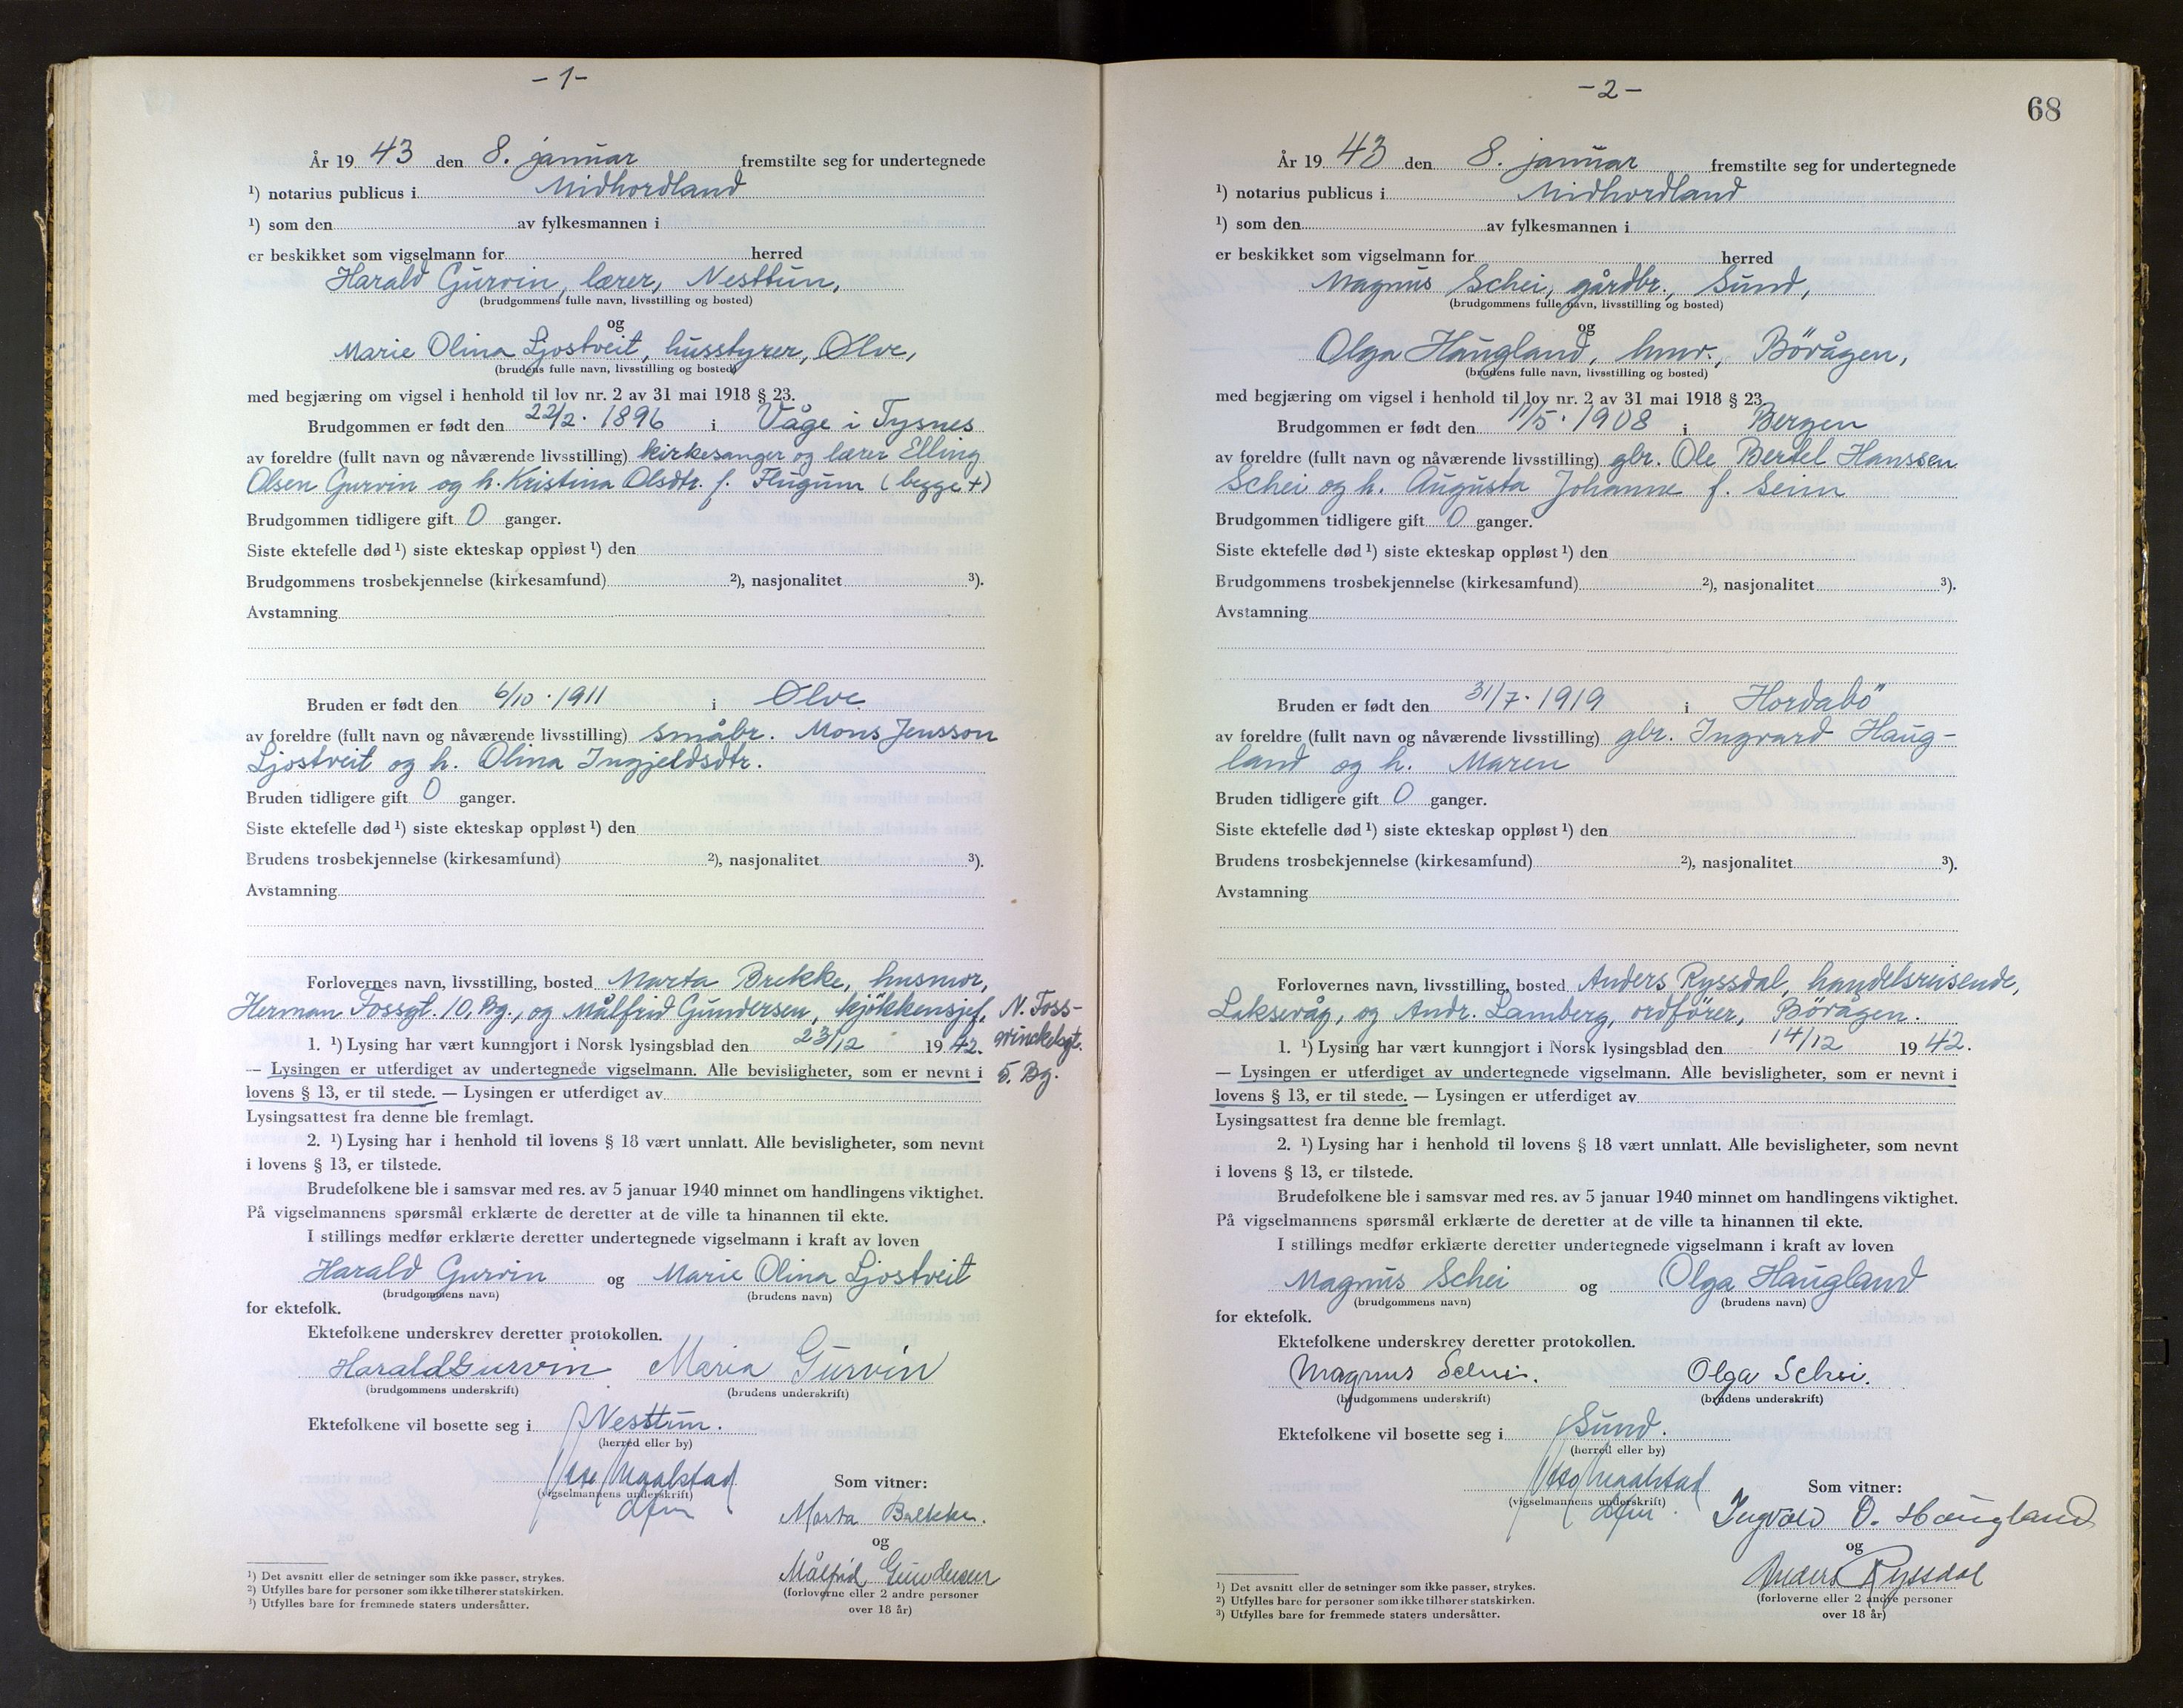 - 1 -
År 19 43 den 8. januar fremstilte seg for undertegnede
¹) notarius publicus i Midhordland
¹) som den av fylkesmannen i
er beskikket som vigselmann for herred
Harald Gurvin, lærer, Nesttun,
(brudgommens fulle navn, livsstilling og bosted)
og
Marie Olina Ljostveit, husstyrer, Ølve,
(brudens fulle navn, livsstilling og bosted)
med begjæring om vigsel i henhold til lov nr. 2 av 31 mai 1918 § 23.
Brudgommen er født den 22/2. 1896 i Våge i Tysnes
av foreldre (fullt navn og nåværende livsstilling) kirkesanger og lærer Elling
Olsen Gurvin og h. Kristina Olsdtr. f. Flugum (begge +)
Brudgommen tidligere gift 0 ganger.
Siste ektefelle død ¹) siste ekteskap oppløst ¹) den
Brudgommens trosbekjennelse (kirkesamfund) ²), nasjonalitet ³).
Avstamning
Bruden er født den 6/10. 1911 i Ølve
av foreldre (fullt navn og nåværende livsstilling) småbr. Mons Jensson
Ljostveit og h. Olina Ingjeldsdtr.
Bruden tidligere gift 0 ganger.
Siste ektefelle død ¹) siste ekteskap oppløst ¹) den
Brudens trosbekjennelse (kirkesamfund) ²), nasjonalitet ³).
Avstamning
Forlovernes navn, livsstilling, bosted Marta Brekke, husmor,
Herman Fossgt. 10, Bg., og Målfrid Gundersen, kjökkensjef, N. Foss-
winckelsgt.
5. Bg.
1. ¹) Lysing har vært kunngjort i Norsk lysingsblad den 23/12 19 42.
— Lysingen er utferdiget av undertegnede vigselmann. Alle bevisligheter, som er nevnt i
lovens § 13, er til stede. — Lysingen er utferdiget av
Lysingsattest fra denne ble fremlagt.
2. ¹) Lysing har i henhold til lovens § 18 vært unnlatt. Alle bevisligheter, som nevnt
i lovens § 13, er tilstede.
Brudefolkene ble i samsvar med res. av 5 januar 1940 minnet om handlingens viktighet.
På vigselmannens spørsmål erklærte de deretter at de ville ta hinannen til ekte.
I stillings medfør erklærte deretter undertegnede vigselmann i kraft av loven
Harald Gurvin og Marie Olina Ljostveit
(brudgommens navn) (brudens navn)
for ektefolk.
Ektefolkene underskrev deretter protokollen.
Harald Gurvin Maria Gurvin
(brudgommens underskrift) (brudens underskrift)
Ektefolkene vil bosette seg i Nesttun.
(herred eller by)
Maalstad
(vigselmannens underskrift)
Som vitner:
Marta Brekke.
og
Målfrid Gundersen
(forloverne eller 2 andre personer
over 18 år)
¹) Det avsnitt eller de setninger som ikke passer, strykes.
²) Utfylles bare for personer som ikke tilhører statskirken.
³) Utfylles bare for fremmede staters undersåtter.
- 2 -
68
År 19 43 den 8. januar fremstilte seg for undertegnede
¹) notarius publicus i Midhordland
¹) som den av fylkesmannen i
er beskikket som vigselmann for herred
Magnus Schei, gårdbr., Sund,
(brudgommens fulle navn, livsstilling og bosted)
og
Olga Haugland, hmr., Börågen,
(brudens fulle navn, livsstilling og bosted)
med begjæring om vigsel i henhold til lov nr. 2 av 31 mai 1918 § 23
Brudgommen er født den 11/5. 1908 i Bergen
av foreldre (fullt navn og nåværende livsstilling) gbr. Ole Bertel Hanssen
Schei og h. Augusta Johanne f. Seim
Brudgommen tidligere gift 0 ganger.
Siste ektefelle død ¹) siste ekteskap oppløst ¹) den
Brudgommens trosbekjennelse (kirkesamfund) ²), nasjonalitet ³).
Avstamning
Bruden er født den 31/7. 1919 i Hordabö
av foreldre (fullt navn og nåværende livsstilling) gbr. Ingvard Haug-
land og h. Maren
Bruden tidligere gift 0 ganger.
Siste ektefelle død ¹) siste ekteskap oppløst ¹) den
Brudens trosbekjennelse (kirkesamfund) ²), nasjonalitet ³).
Avstamning
Forlovernes navn, livsstilling, bosted Anders Ryssdal, handelsreisende,
Laksevåg, og Andr. Lamberg, ordförer, Börågen.
1. ¹) Lysing har vært kunngjort i Norsk lysingsblad den 14/12 19 42.
— Lysingen er utferdiget av undertegnede vigselmann. Alle bevisligheter, som er nevnt i
lovens § 13, er til stede. — Lysingen er utferdiget av
Lysingsattest fra denne ble fremlagt.
2. ¹) Lysing har i henhold til lovens § 18 vært unnlatt. Alle bevisligheter, som nevnt
i lovens § 13, er tilstede.
Brudefolkene ble i samsvar med res. av 5 januar 1940 minnet om handlingens viktighet.
På vigselmannens spørsmål erklærte de deretter at de ville ta hinannen til ekte.
I stillings medfør erklærte deretter undertegnede vigselmann i kraft av loven
Magnus Schei og Olga Haugland
(brudgommens navn) (brudens navn)
for ektefolk.
Ektefolkene underskrev deretter protokollen.
Magnus Schei. Olga Schei.
(brudgommens underskrift) (brudens underskrift)
Ektefolkene vil bosette seg i Sund.
(herred eller by)
Maalstad
(vigselmannens underskrift)
Som vitner:
Ingvald O. Haugland
og
Anders Ryssdal
(forloverne eller 2 andre personer
over 18 år)
¹) Det avsnitt eller de setninger som ikke passer, strykes.
²) Utfylles bare for personer som ikke tilhører statskirken.
³) Utfylles bare for fremmede staters undersåtter.